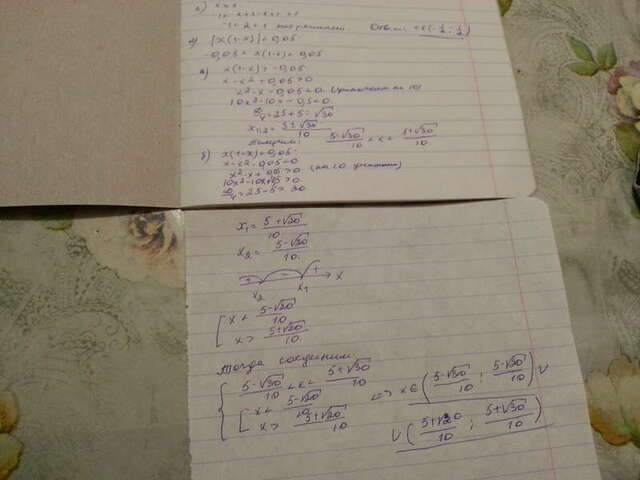 |x(1-x)|<0,05
-0,05 < x(1-x) < 0,05
а) x(1-x) > -0,05
x-x²+0,05>0
x²-x-0,05<0 (умножаем на 10)
10x²-10x-0,5<0
D/4=25+5=√30
x₁,₂=(5±√30)/10
Получим: (5-√30)/10 < x < (5+√30)/10
б) x(1-x)<0,05
x-x²-0,05<0
x²-x+0,05>0 (на 10 умножаем)
D/4=25-5=20
x₁=(5+√20)/10
x₂=(5-√20)/10
+ - + x
x₂ x₁
[ x < (5-√20)/10
x > (5+√20)/10
Тогда соединим
{ (5-√30)/10 < x < (5+√30)/10
[ x < (5-√20)/10
x > (5+√20)/10
<=> x∈((5-√30)/10 ; (5-√20)/10) ∪
∪ ((5+√20)/10 ; (5+√30)/10)